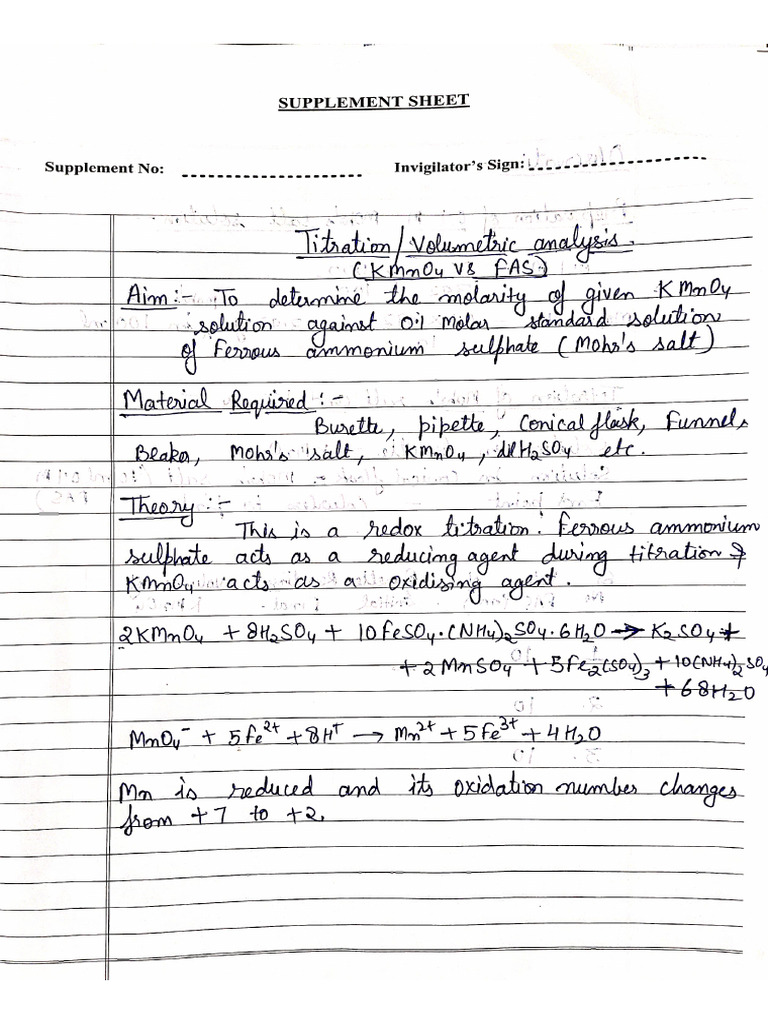 SUPPLEMENT SHEET
Supplement No: Invigilator's Sign:
Titration/Volumetric analysis.
(KMnO4 VS FAS)
Aim:- To determine the molarity of given KMnO4
solution against 0.1 Molar standard solution
of Ferrous ammonium sulphate (Mohr's salt)
Material Required:-
Burette, pipette, Conical flask, Funnel,
Beaker, Mohr's salt, KMnO4, dil H2SO4 etc.
Theory:-
This is a redox titration. Ferrous ammonium
sulphate acts as a reducing agent during titration &
KMnO4 acts as a oxidising agent.
2KMnO4 + 8H2SO4 + 10FeSO4.(NH4)2SO4.6H2O → K2SO4 +
+ 2MnSO4 + 5Fe2(SO4)3 + 10(NH4)2SO4
+ 68H2O
MnO4⁻ + 5Fe²⁺ + 8H⁺ → Mn²⁺ + 5Fe³⁺ + 4H2O
Mn is reduced and its oxidation number changes
from +7 to +2.